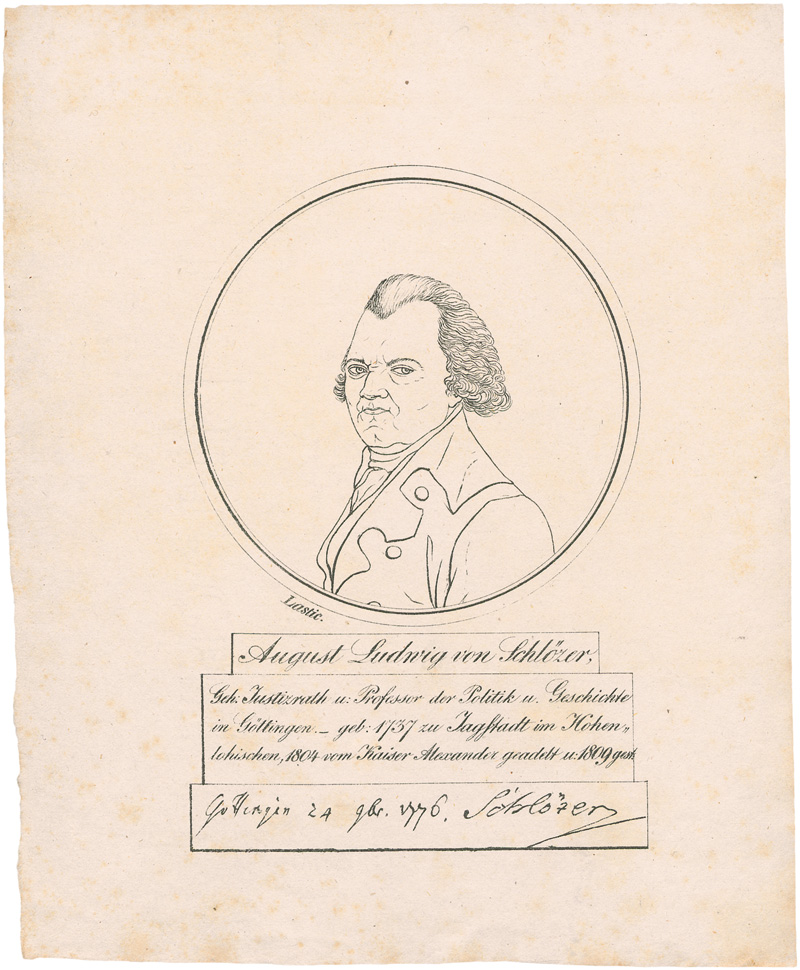 Lastic.
August Ludwig von Schlözer,
Geh: Justizrath u: Professor der Politik u. Geschichte
in Göttingen. – geb: 1737 zu Jagstadt im Hohen„
lohischen, 1804 vom Kaiser Alexander geadelt u: 1809 gest.
Gottingen 24 9br. 1776. Schlözer